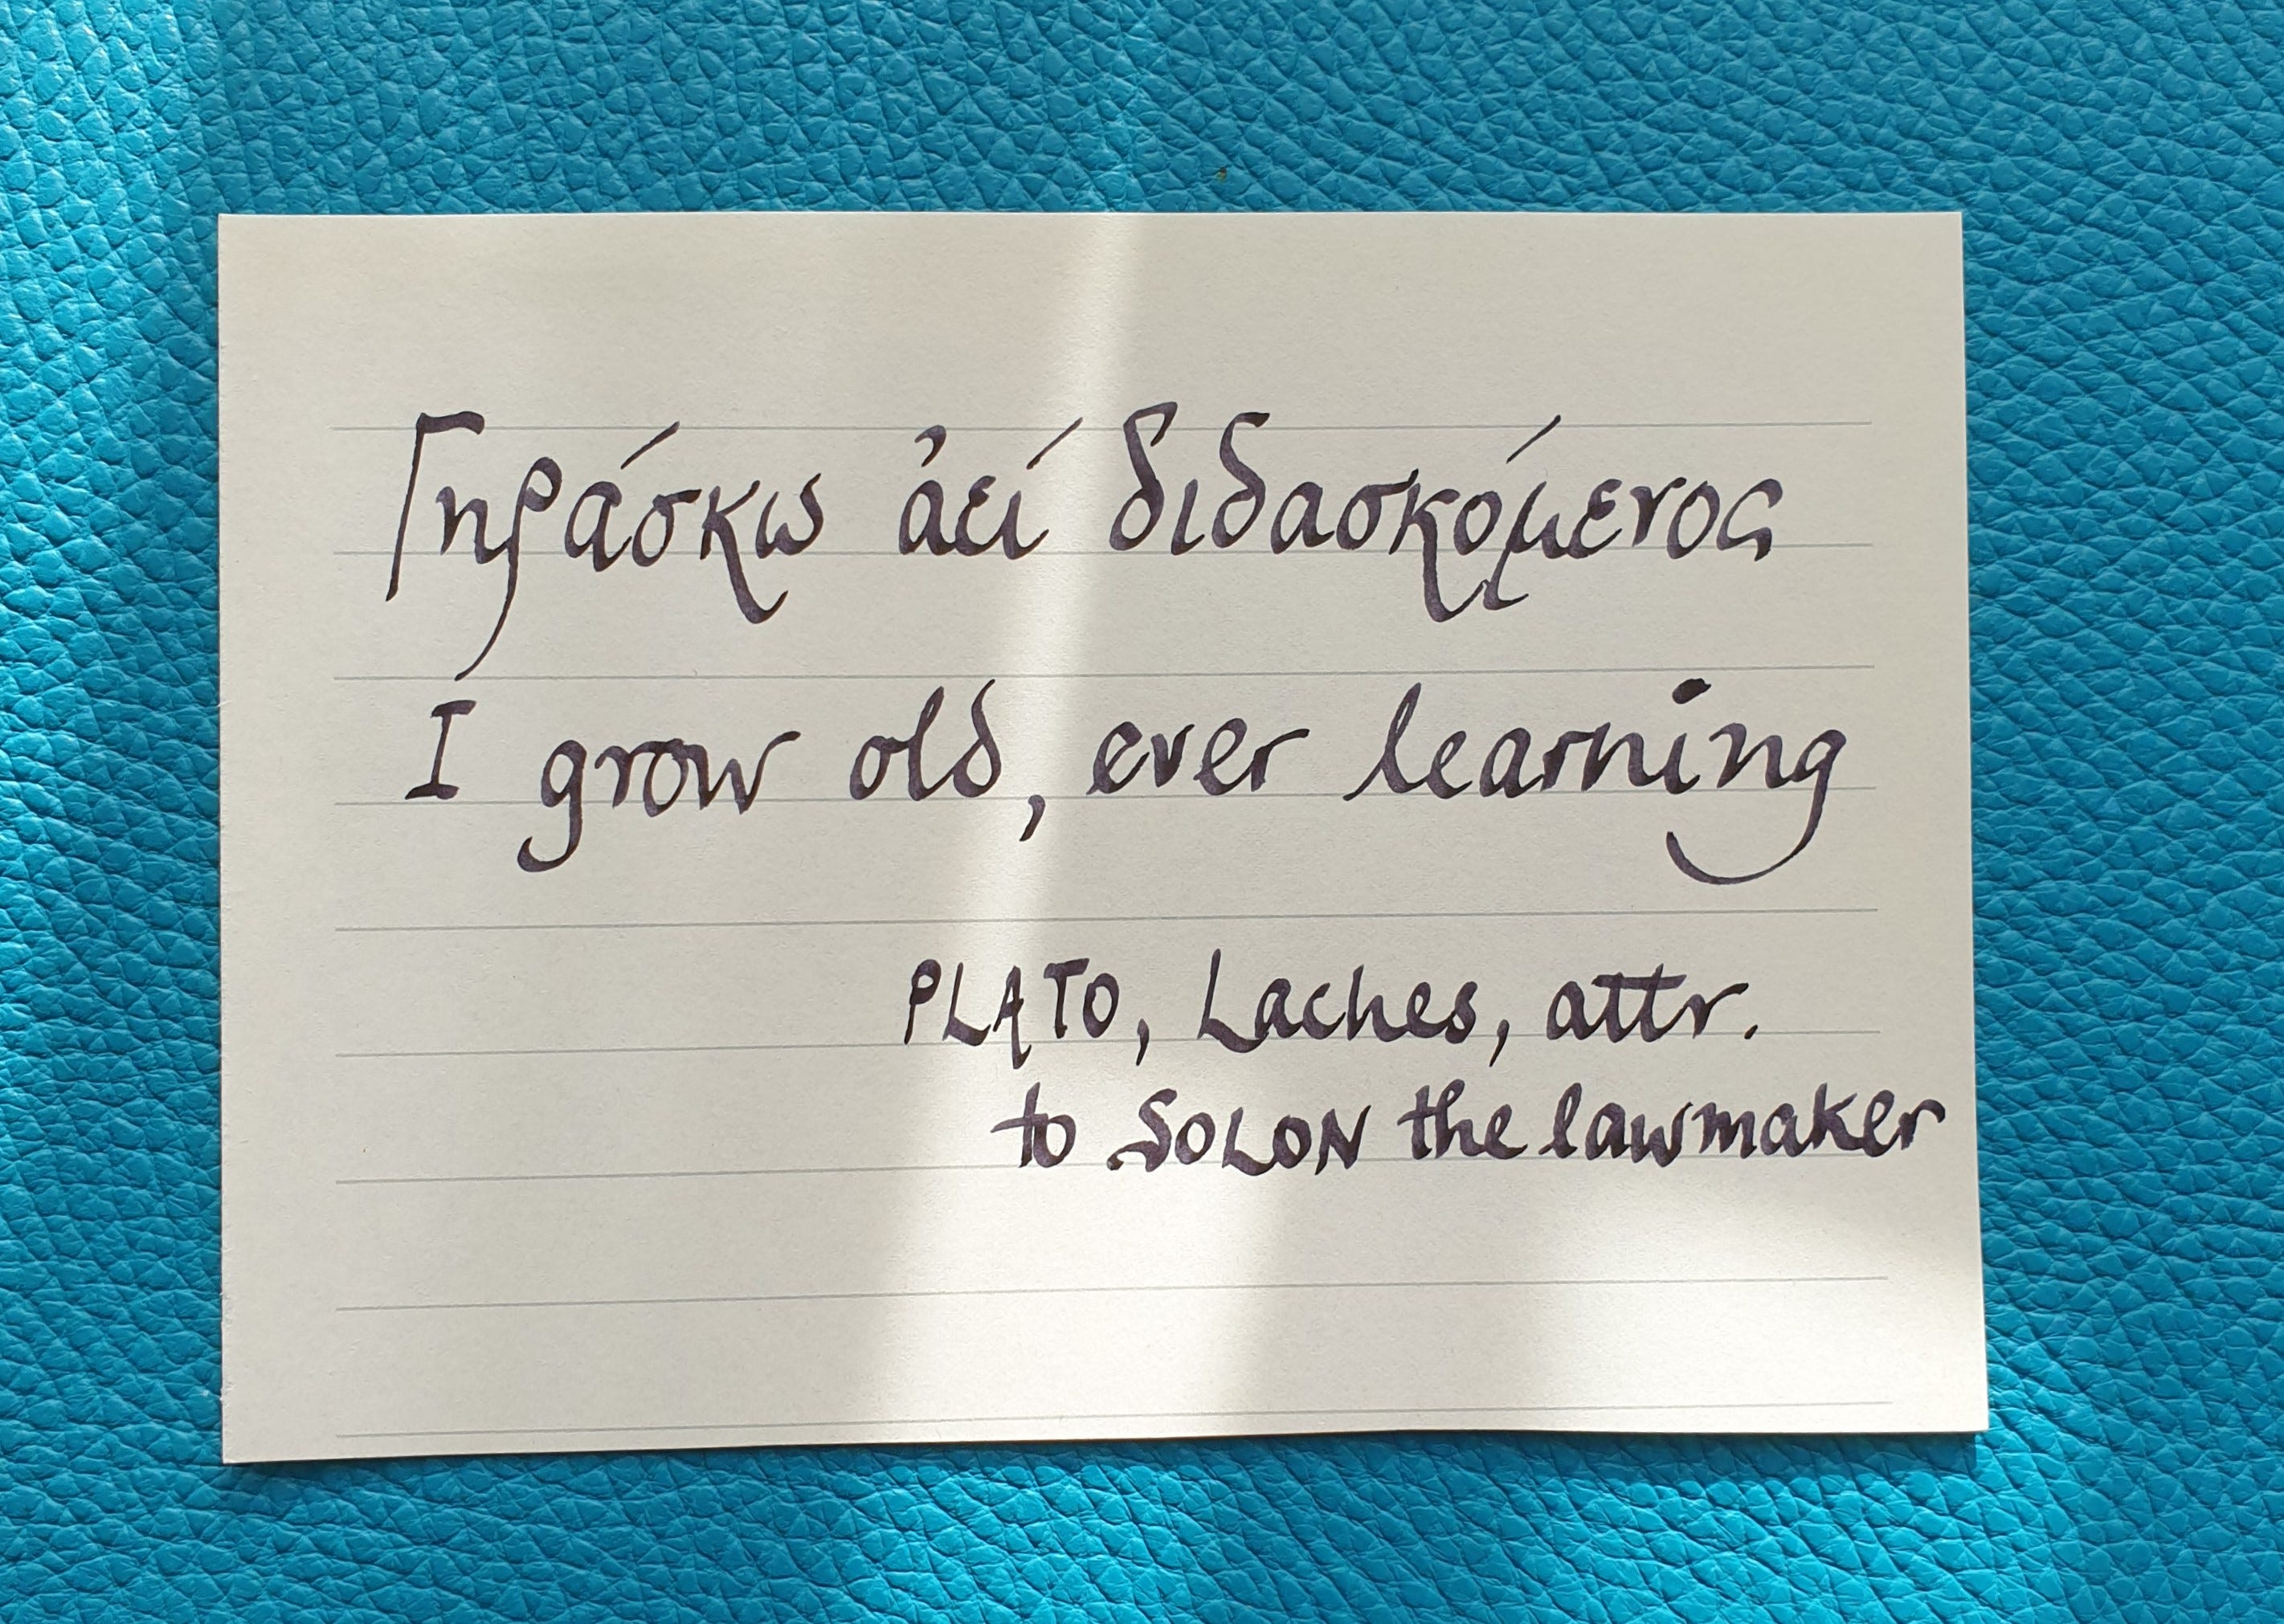 Γηράσκω ἀεί διδασκόμενος
I grow old, ever learning
PLATO, Laches, attr.
to SOLON the lawmaker